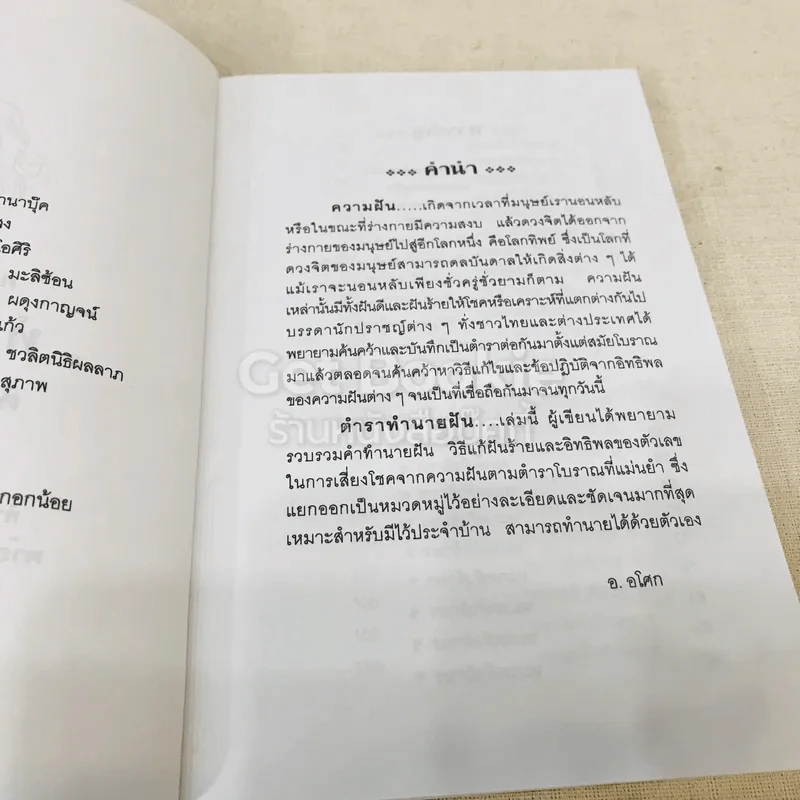 นาบุ๊ค
อศิริ
มะลิซ้อน
ผดุงกาญจน์
แก้ว
ชวลิตนิธิผลลาภ
สุภาพ
กอกน้อย
คำนำ
ความฝัน.....เกิดจากเวลาที่มนุษย์เรานอนหลับ
หรือในขณะที่ร่างกายมีความสงบ แล้วดวงจิตได้ออกจาก
ร่างกายของมนุษย์ไปสู่อีกโลกหนึ่ง คือโลกทิพย์ ซึ่งเป็นโลกที่
ดวงจิตของมนุษย์สามารถดลบันดาลให้เกิดสิ่งต่าง ๆ ได้
แม้เราจะนอนหลับเพียงชั่วครู่ชั่วยามก็ตาม ความฝัน
เหล่านั้นมีทั้งฝันดีและฝันร้ายให้โชคหรือเคราะห์ที่แตกต่างกันไป
บรรดานักปราชญ์ต่าง ๆ ทั้งชาวไทยและต่างประเทศได้
พยายามค้นคว้าและบันทึกเป็นตำราต่อกันมาตั้งแต่สมัยโบราณ
มาแล้วตลอดจนค้นคว้าหาวิธีแก้ไขและข้อปฏิบัติจากอิทธิพล
ของความฝันต่าง ๆ จนเป็นที่เชื่อถือกันมาจนทุกวันนี้
ร้านหนังสือเก๊ดบุ๊คกี้
ตำราทำนายฝัน.....เล่มนี้ ผู้เขียนได้พยายาม
รวบรวมคำทำนายฝัน วิธีแก้ฝันร้ายและอิทธิพลของตัวเลข
ในการเสี่ยงโชคจากความฝันตามตำราโบราณที่แม่นยำ ซึ่ง
แยกออกเป็นหมวดหมู่ไว้อย่างละเอียดและชัดเจนมากที่สุด
เหมาะสำหรับมีไว้ประจำบ้าน สามารถทำนายได้ด้วยตัวเอง
อ. อโศก